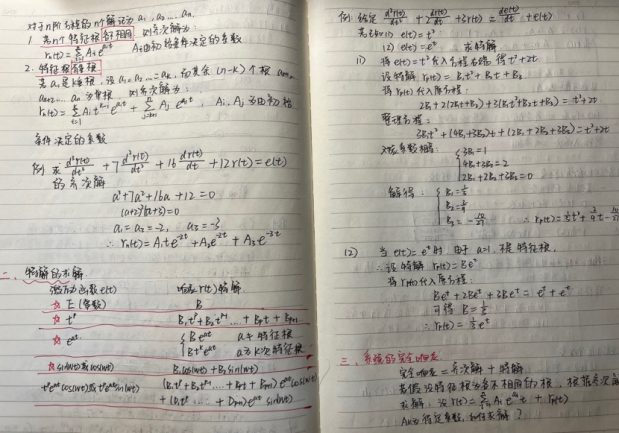 对于n阶方程的n个解记为 a₁, a₂ ... aₙ
1. 若n个特征根各不相同 则齐次解为:
rₕ(t) = Σ Aᵢe^(aᵢt) Aᵢ由初始条件决定的系数
2. 特征根有重根
若a₁是k重根, 设a₁=a₂...=aₖ, 而其余(n-k)个根
aₙ为单根 则齐次解为:
条件决定的系数
例 求 d³r(t)/dt³ + 7 d²r(t)/dt² + 16 dr(t)/dt + 12r(t) = e(t)
的齐次解
a³+7a²+16a+12=0
(a+2)²(a+3)=0
a₁=a₂=-2, a₃=-3
∴ rₕ(t) = A₁te^(-2t) + A₂e^(-2t) + A₃e^(-3t)
二、特解的求解
激励函数e(t) 响应r(t)特解
☆ E (常数) B
☆ tᵖ B₁tᵖ+B₂tᵖ⁻¹ .... + Bₚt + Bₚ₊₁
☆ e^(at) { Be^(at) a≠特征根
Btᵏe^(at) a为k次特征根
☆ sin(wt)或cos(wt) B₁cos(wt)+B₂sin(wt)
tᵖe^(at)cos(wt)或tᵖe^(at)sin(wt) (B₁tᵖ+B₂tᵖ⁻¹ ... +Bₚt+Bₚ₊₁)e^(at)cos(wt)
+(D₁tᵖ ... + Dₚ₊₁)e^(at)sin(wt)
例: 给定 d²r(t)/dt² + 2 dr(t)/dt + 3r(t) = de(t)/dt + e(t)
若已知(1) e(t)=t²
(2) e(t)=eᵗ 求特解
(1) 将e(t)=t²代入方程右端, 得t²+2t
设特解 rₚ(t) = B₁t²+B₂t+B₃
将rₚ(t)代入原方程:
2B₁+2(2B₁t+B₂)+3(B₁t²+B₂t+B₃) = t²+2t
整理方程:
3B₁t²+(4B₁+3B₂)t+(2B₁+2B₂+3B₃)=t²+2t
对应系数相等: { 3B₁=1
4B₁+3B₂=2
2B₁+2B₂+3B₃=0
解得: { B₁=1/3
B₂=2/9
B₃=-10/27 ∴ rₚ(t)=1/3t²+2/9t-10/27
(2) 当e(t)=eᵗ时, 由于a=1, 不是特征根,
∴设特解 rₚ(t)=Beᵗ
将rₚ(t)代入原方程:
Beᵗ+2Beᵗ+3Beᵗ=eᵗ+eᵗ
可得 B=1/3
∴ rₚ(t)=1/3eᵗ
三、系统的完全响应
完全响应 = 齐次解 + 特解
若假设特征根为各不相同的根, 根据齐次
求解: 设 r(t)=Σ Aᵢe^(aᵢt) + rₚ(t)
Aᵢ为待定系数, 如何求解?